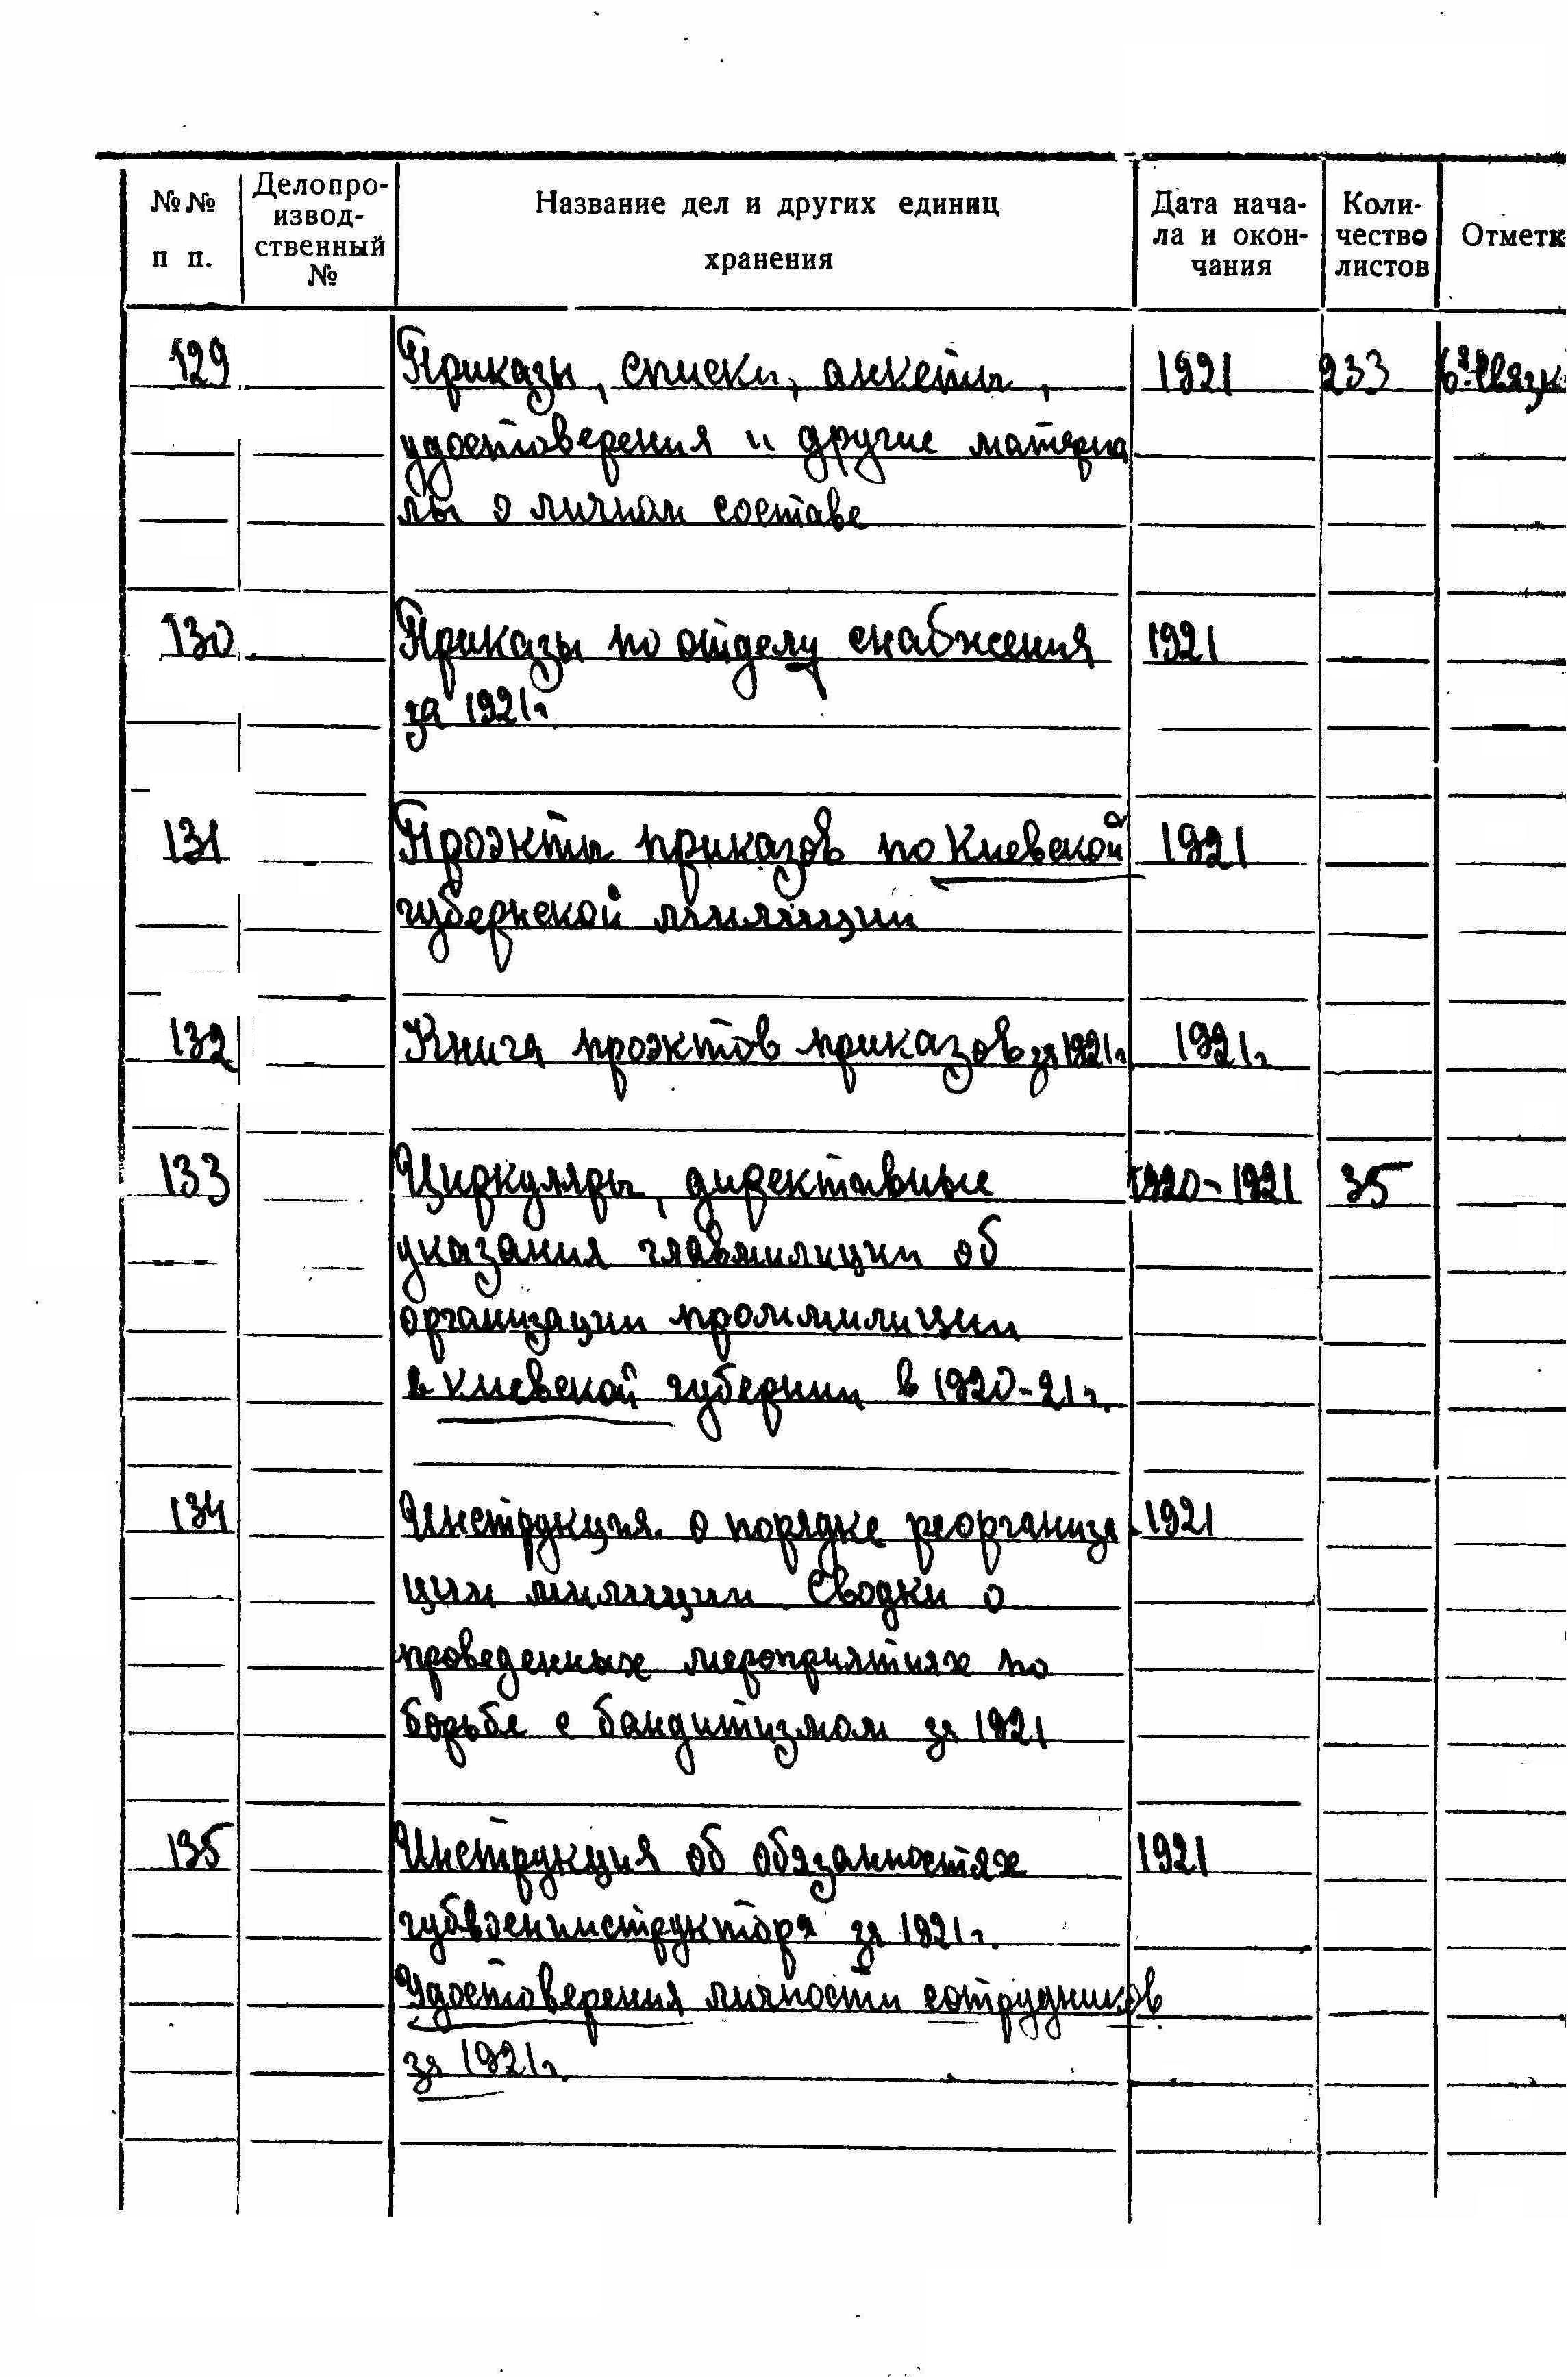 №№ п п.
Делопро-
извод-
ственный
№
Название дел и других единиц
хранения
Дата нача-
ла и окон-
чания
Коли-
чество
листов
Отметк
129 Приказы, списки, анкеты, 1921 233
удостоверения и другие материа
лы о личном составе
130 Приказы по отделу снабжения 1921
за 1921г.
131 Проэкты приказов по Киевской 1921
губернской милиции
132 Книга проэктов приказов за 1921г. 1921г.
133 Циркуляры, директивные 1920-1921 35
указания главмилиции об
организации проммилиции
в киевской губернии в 1920-21г.
134 Инструкция о порядке реорганиза 1921
ции милиции. Сводки о
проведенных мероприятиях по
борьбе с бандитизмом за 1921
135 Инструкция об обязанностях 1921
губвоенинструктора за 1921г.
Удостоверения личности сотрудников
за 1921г.